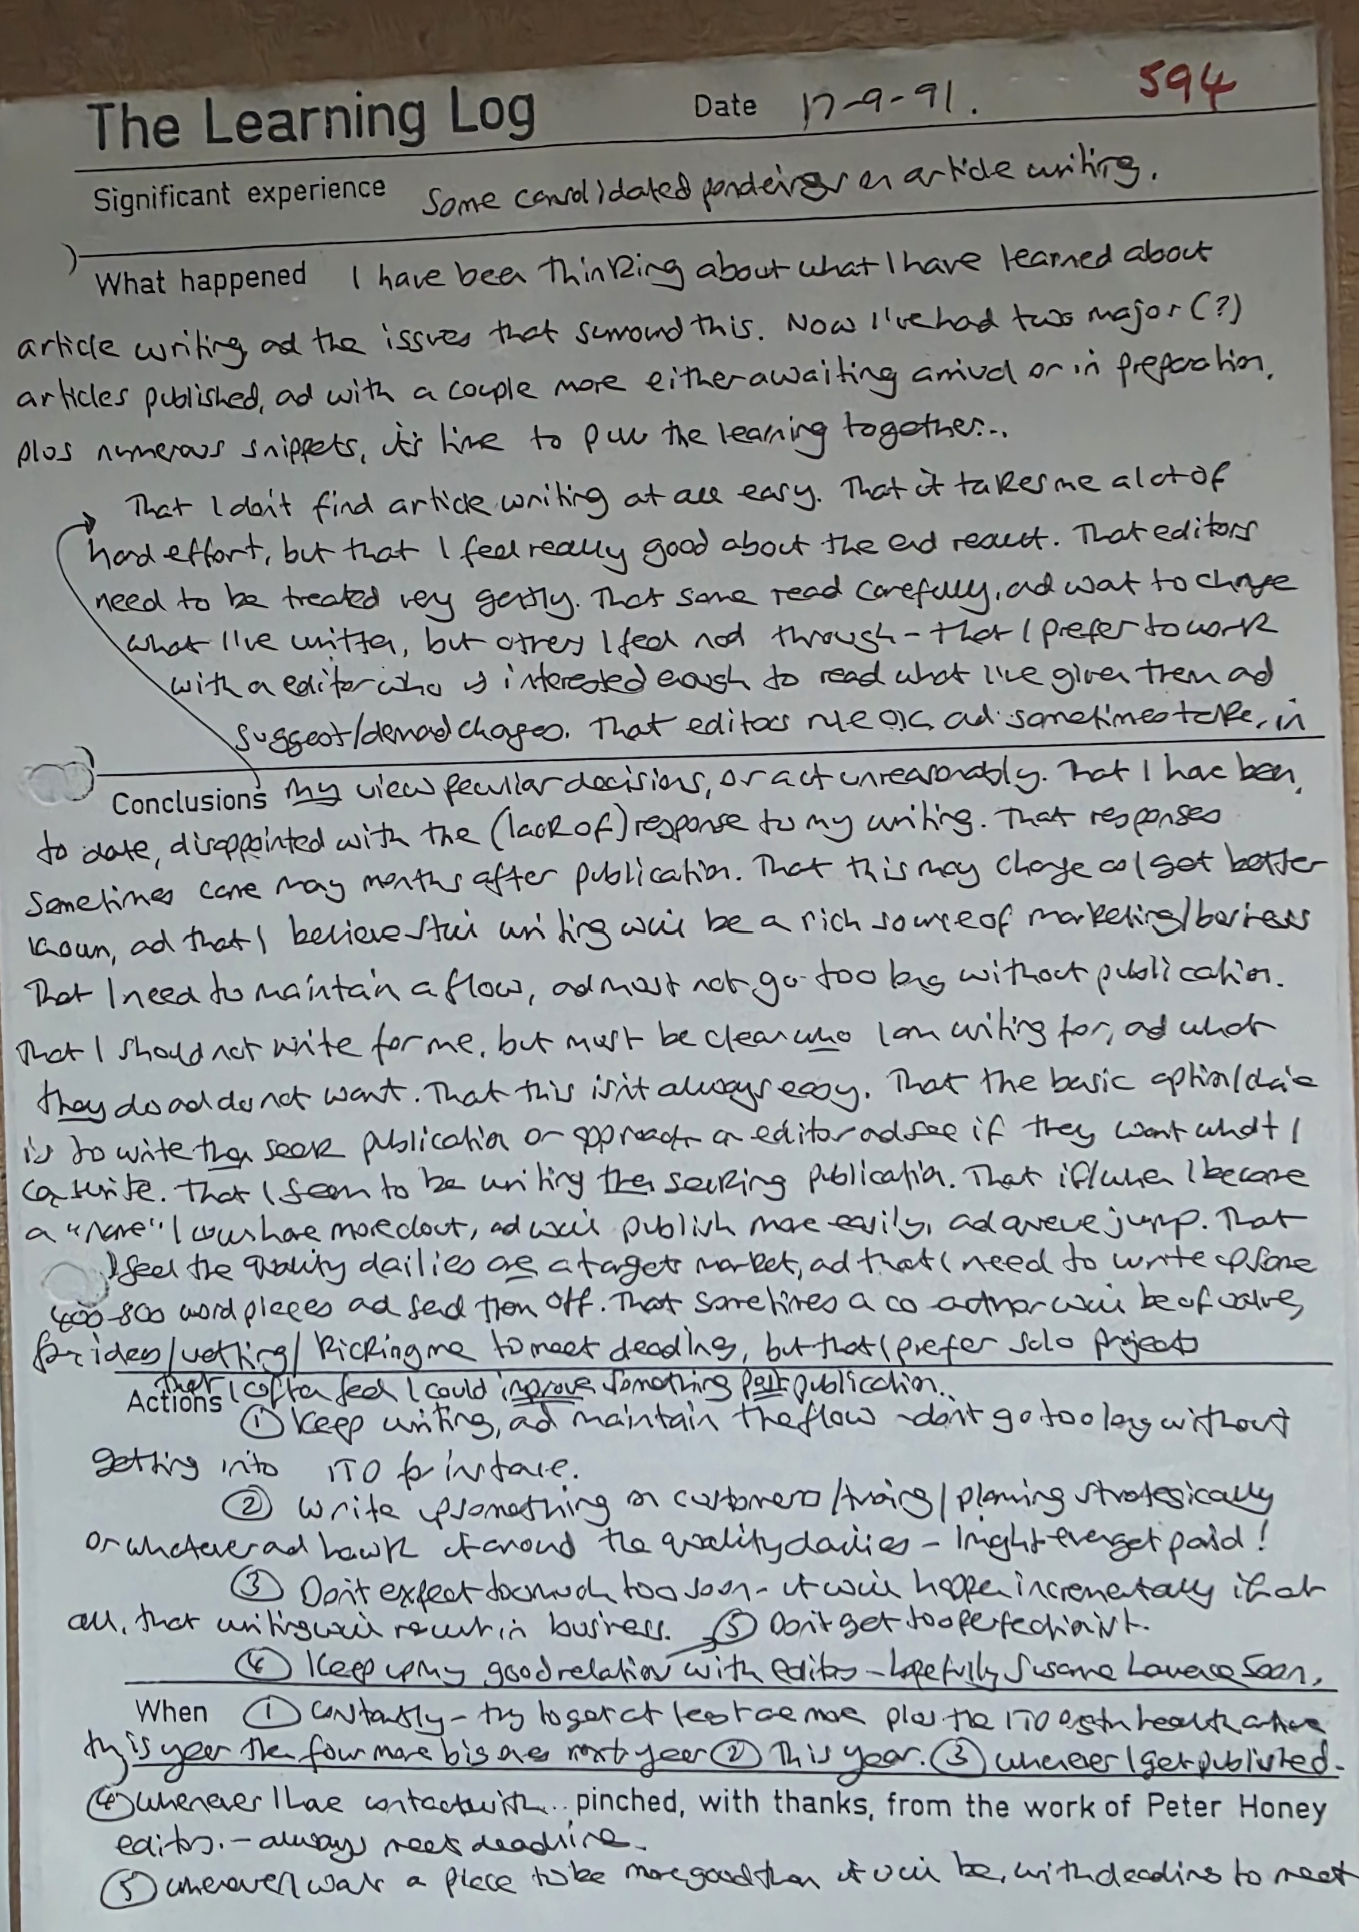 The Learning Log Date 17-9-91. 594
Significant experience Some consolidated ponderings on article writing.
What happened I have been thinking about what I have learned about
article writing, ad the issues that surround this. Now I've had two major (?)
articles published, ad with a couple more either awaiting arrival or in preparation,
plus numerous snippets, it's time to pull the learning together...
That I don't find article writing at all easy. That it takes me a lot of
hard effort, but that I feel really good about the end result. That editors
need to be treated very gently. That some read carefully, ad want to change
what I've written, but others I feel nod through - that I prefer to work
with a editor who is interested enough to read what I've given them ad
suggest/demand changes. That editors rule O.K, ad sometimes take, in
Conclusions my view peculiar decisions, or act unreasonably. That I have been,
to date, disappointed with the (lack of) response to my writing. That responses
sometimes come many months after publication. That this may change as I get better
known, ad that I believe still writing will be a rich source of marketing/business
That I need to maintain a flow, ad must not go too long without publication.
That I should not write for me, but must be clear who I am writing for, ad what
they do ad do not want. That this isn't always easy. That the basic option/choice
is to write then seek publication or approach an editor ad see if they want what I
can write. That I seem to be writing then seeking publication. That if/when I become
a "name" I will have more clout, ad will publish more easily, ad queue jump. That
I feel the quality dailies are a target market, ad that I need to write up some
400-800 word pieces ad send them off. That sometimes a co-author will be of value,
for ideas/vetting/kicking me to meet deadlines, but that I prefer solo projects
That I often feel I could improve something post publication..
Actions ① Keep writing, ad maintain the flow - don't go too long without
getting into ITO for instance.
② Write up something on customers/training/planning strategically
or whatever ad hawk it around the quality dailies - I might even get paid!
③ Don't expect too much too soon - it will happen incrementally if at
all, that writing will result in business. ⑤ Don't get too perfectionist.
④ Keep up my good relation with editors - hopefully Susanne Lawrence soon.
When ① Constantly - try to get at least one more plus the ITO health article
this year then four more big ones next year ② This year. ③ whenever I get published.
④ whenever I have contact with... pinched, with thanks, from the work of Peter Honey
editors. - always meet deadline.
⑤ whenever I want a piece to be more good than it will be, with deadlines to meet